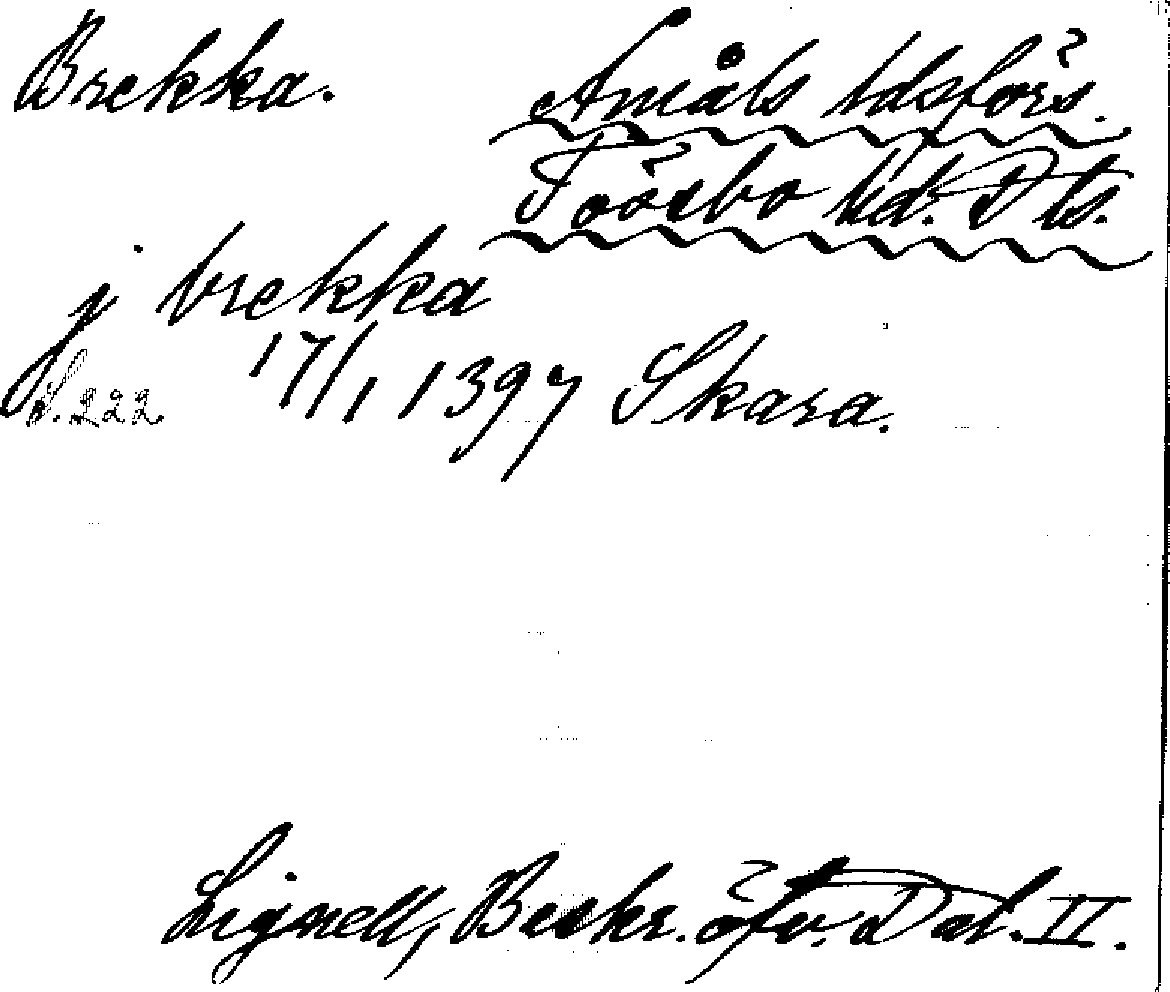 Brekka.
Åmåls ldsförs.
Tössbo hd. Dls.
j brekka
17/1 1397 Skara.
S. 222
Lignell, Beskr. öfv. Dal. II.